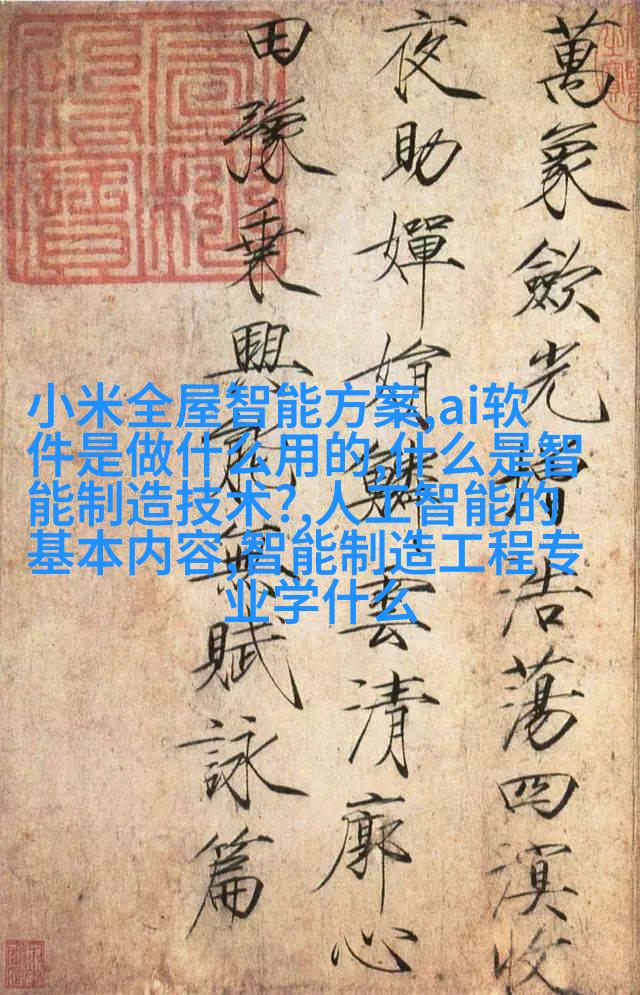 萬象歛光增浩蕩四溟收
夜助嬋娟鱗雲清廓心
田豫乘興能無賦詠篇
小米全屋智能方案,ai软
件是做什么用的,什么是智
能制造技术?,人工智能的
基本内容,智能制造工程专
业学什么